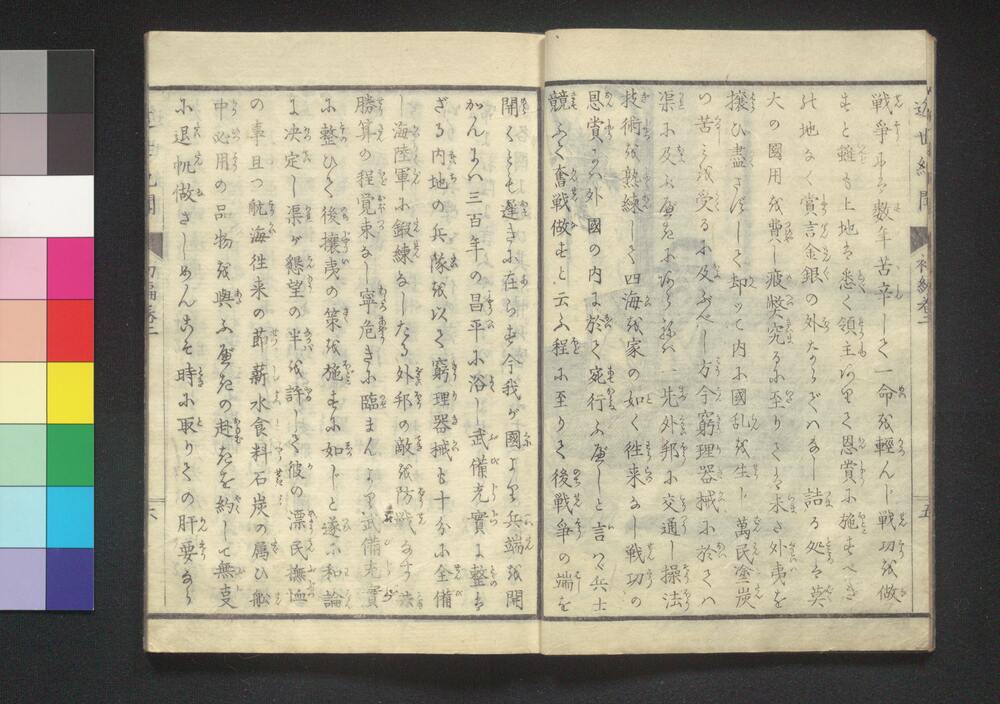 近世紀聞 初編巻二 五
戦争すること数年苦辛して一命を軽んじ戦功を做
すと雖も土地は悉く領主ありて恩賞に施すべき
地なく賞言金銀の外なからざれバなし詰る処は莫
大の國用を費し疲弊究るに至りては未だ外夷を
攘ひ盡さずして却ッて内に國乱を生じ萬民塗炭
の苦しみを受るに及ぶべし方今窮理器械に於ては
渠に及ぶ
一先外邦に交通し操法
技術を熟練して四海を家の如く徃来なし戦功の
恩賞には外國の内に於て宛行ふべしと言ハゞ兵士
競ふて奮戦做すと云ふ程に至りて後戦争の端を
開くとも遅きに在らず今我が國より兵端を開
かんには三百年の昌平に浴し武備充實に整は
ざる内地の兵隊を以て窮理器械も十分に全備
し海陸軍に鍛練なしたる外邦の敵を防戦なす共
勝算の程覚束なし寧危きに臨まんより武備充實
に整ひて後攘夷の策を施すに如じと遂に和論
に決定し渠が懇望の半を許して彼の漂民撫恤
の事且つ航海徃来の節薪水食料石炭の属ひ船
中必用の品物を與ふべきの趣きを約して無事
に退帆做さしめんこそ時に取りての肝要なら
近世紀聞 初編巻二 六